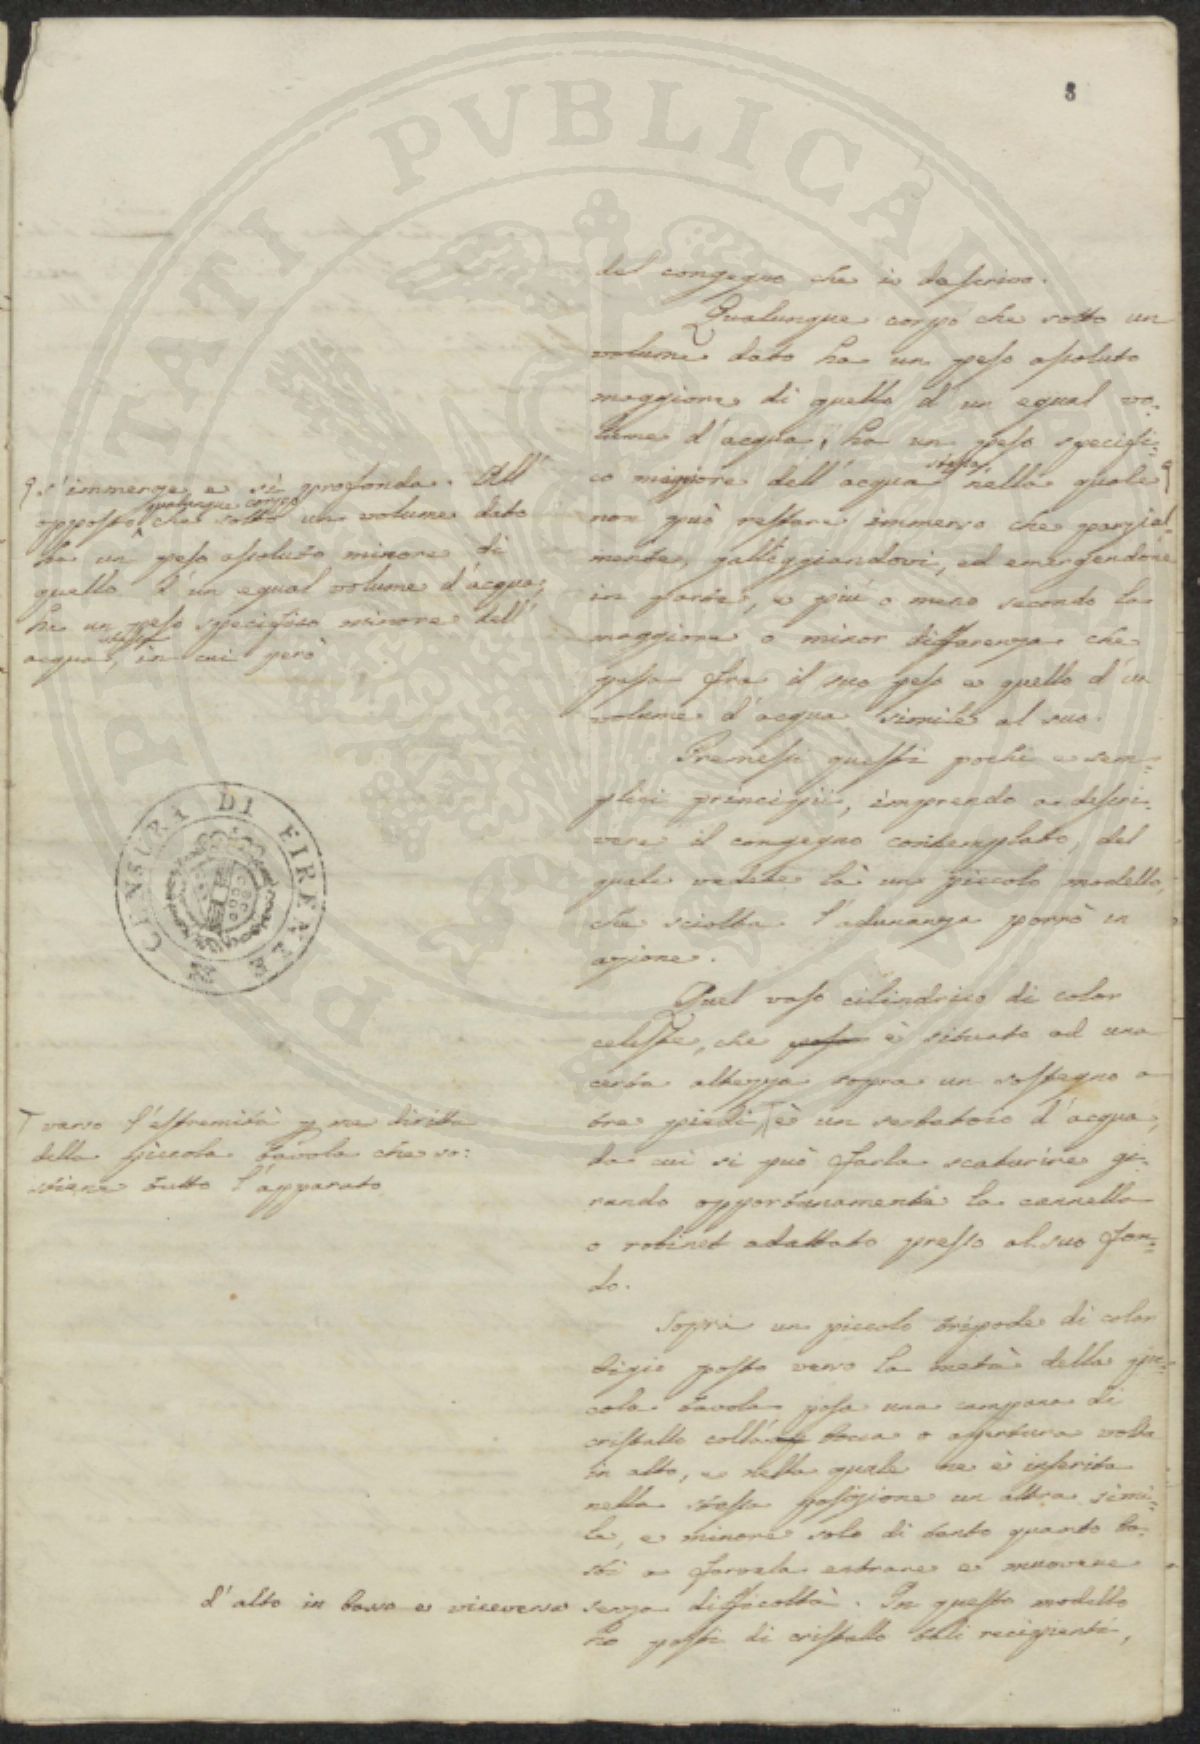 8
del congegno che io descrivo.
Qualunque corpo che sotto un
volume dato ha un peso assoluto
maggiore di quello d'un egual vo-
lume d'acqua, ha un peso specifi-
co maggiore dell'acqua stessa, nella quale
non può restare immerso che parzial-
mente, galleggiandovi, ed emergendone
in parte, e più o meno secondo la
maggiore o minor differenza che
passa fra il suo peso e quello d'un
volume d'acqua simile al suo.
Premessi questi pochi e sem-
plici principii, imprendo a descri-
vere il congegno contemplato, del
quale vedete là un piccolo modello,
che sciolta l'adunanza porrò in
azione.
Quel vaso cilindrico di color
celeste, che posa è situato ad una
certa altezza sopra un sostegno a
tre piedi, è un serbatoio d'acqua,
da cui si può farla scaturire gi-
rando opportunamente la cannella
o robinet adattato presso al suo fon-
do.
Sopra un piccolo tripode di color
bigio posto verso la metà della pic-
cola tavola posa una campana di
cristallo colla bocca o apertura volta
in alto, e nella quale ne è inserita
nella stessa posizione un altra simi-
le, e minore solo di tanto quanto ba-
sti a farvela entrare e muovere
senza difficoltà. In questo modello
ho posti di cristallo tali recipienti,
s'immerge e si profonda. All'
opposto qualunque corpo che sotto un volume dato
ha un peso assoluto minore di
quello d'un egual volume d'acqua,
ha un peso specifico minore dell'
acqua stessa, in cui però
CENSURA DI FIRENZE
verso l'estremità diritta
della piccola tavola che so-
stiene tutto l'apparato
d'alto in basso e viceversa
PIETATI PVBLICAE